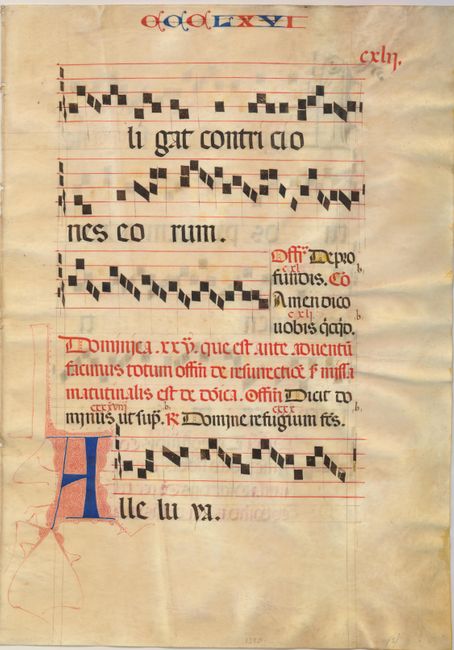 CCCLXVI
cxlij.
li gat contricio
nes eo rum.
Offr̄ Depro
fundis. Cō
cxl b.
Amen dico
cxlj
uobis q̄cq̄d. b.
Dominica .xxv. que est ante aduentū
facimus totum offm̄ de resurectiōe ſ missa
matutinalis est de dōica. Offm̄ Dicit do
cxxxviij b. cxxx b.
minus ut sup̄. R Domine refugium fc̄s.
Alle lu ya.